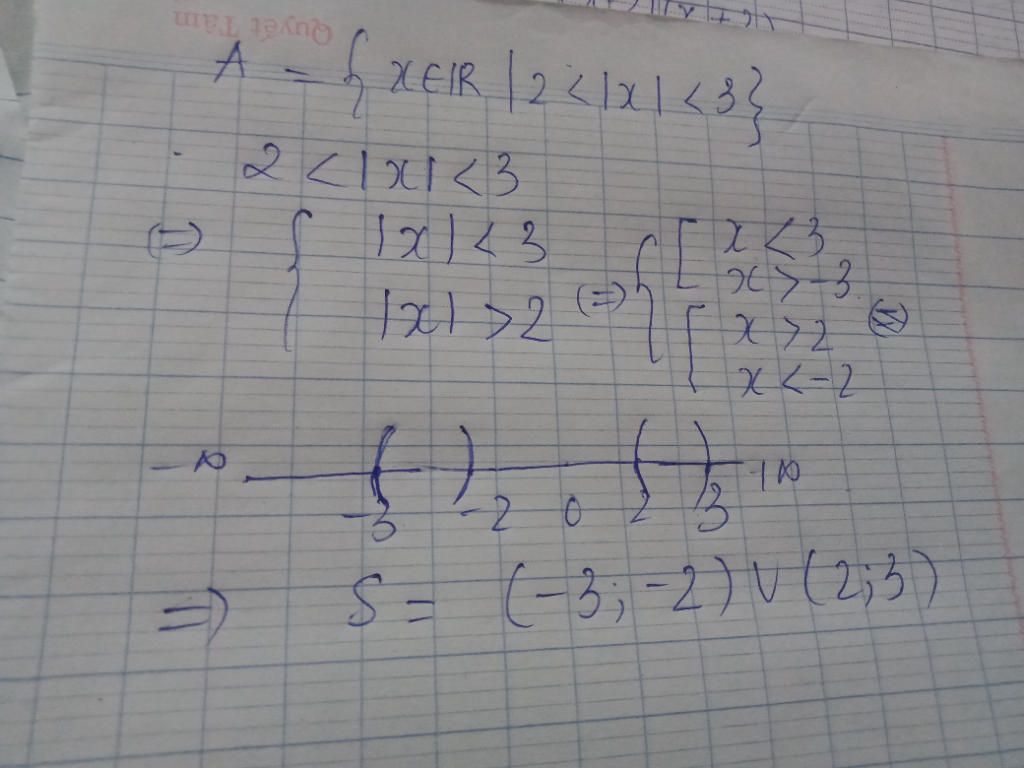 Quyết Tâm
A = { x ∈ ℝ | 2 < |x| < 3 }
2 < |x| < 3
(=) { |x| < 3 (=) { [ x < 3
x > -3
|x| > 2 [ x > 2
x < -2
-∞ ( ) ( ) +∞
-3 -2 0 2 3
=) S = (-3; -2) ∪ (2; 3)